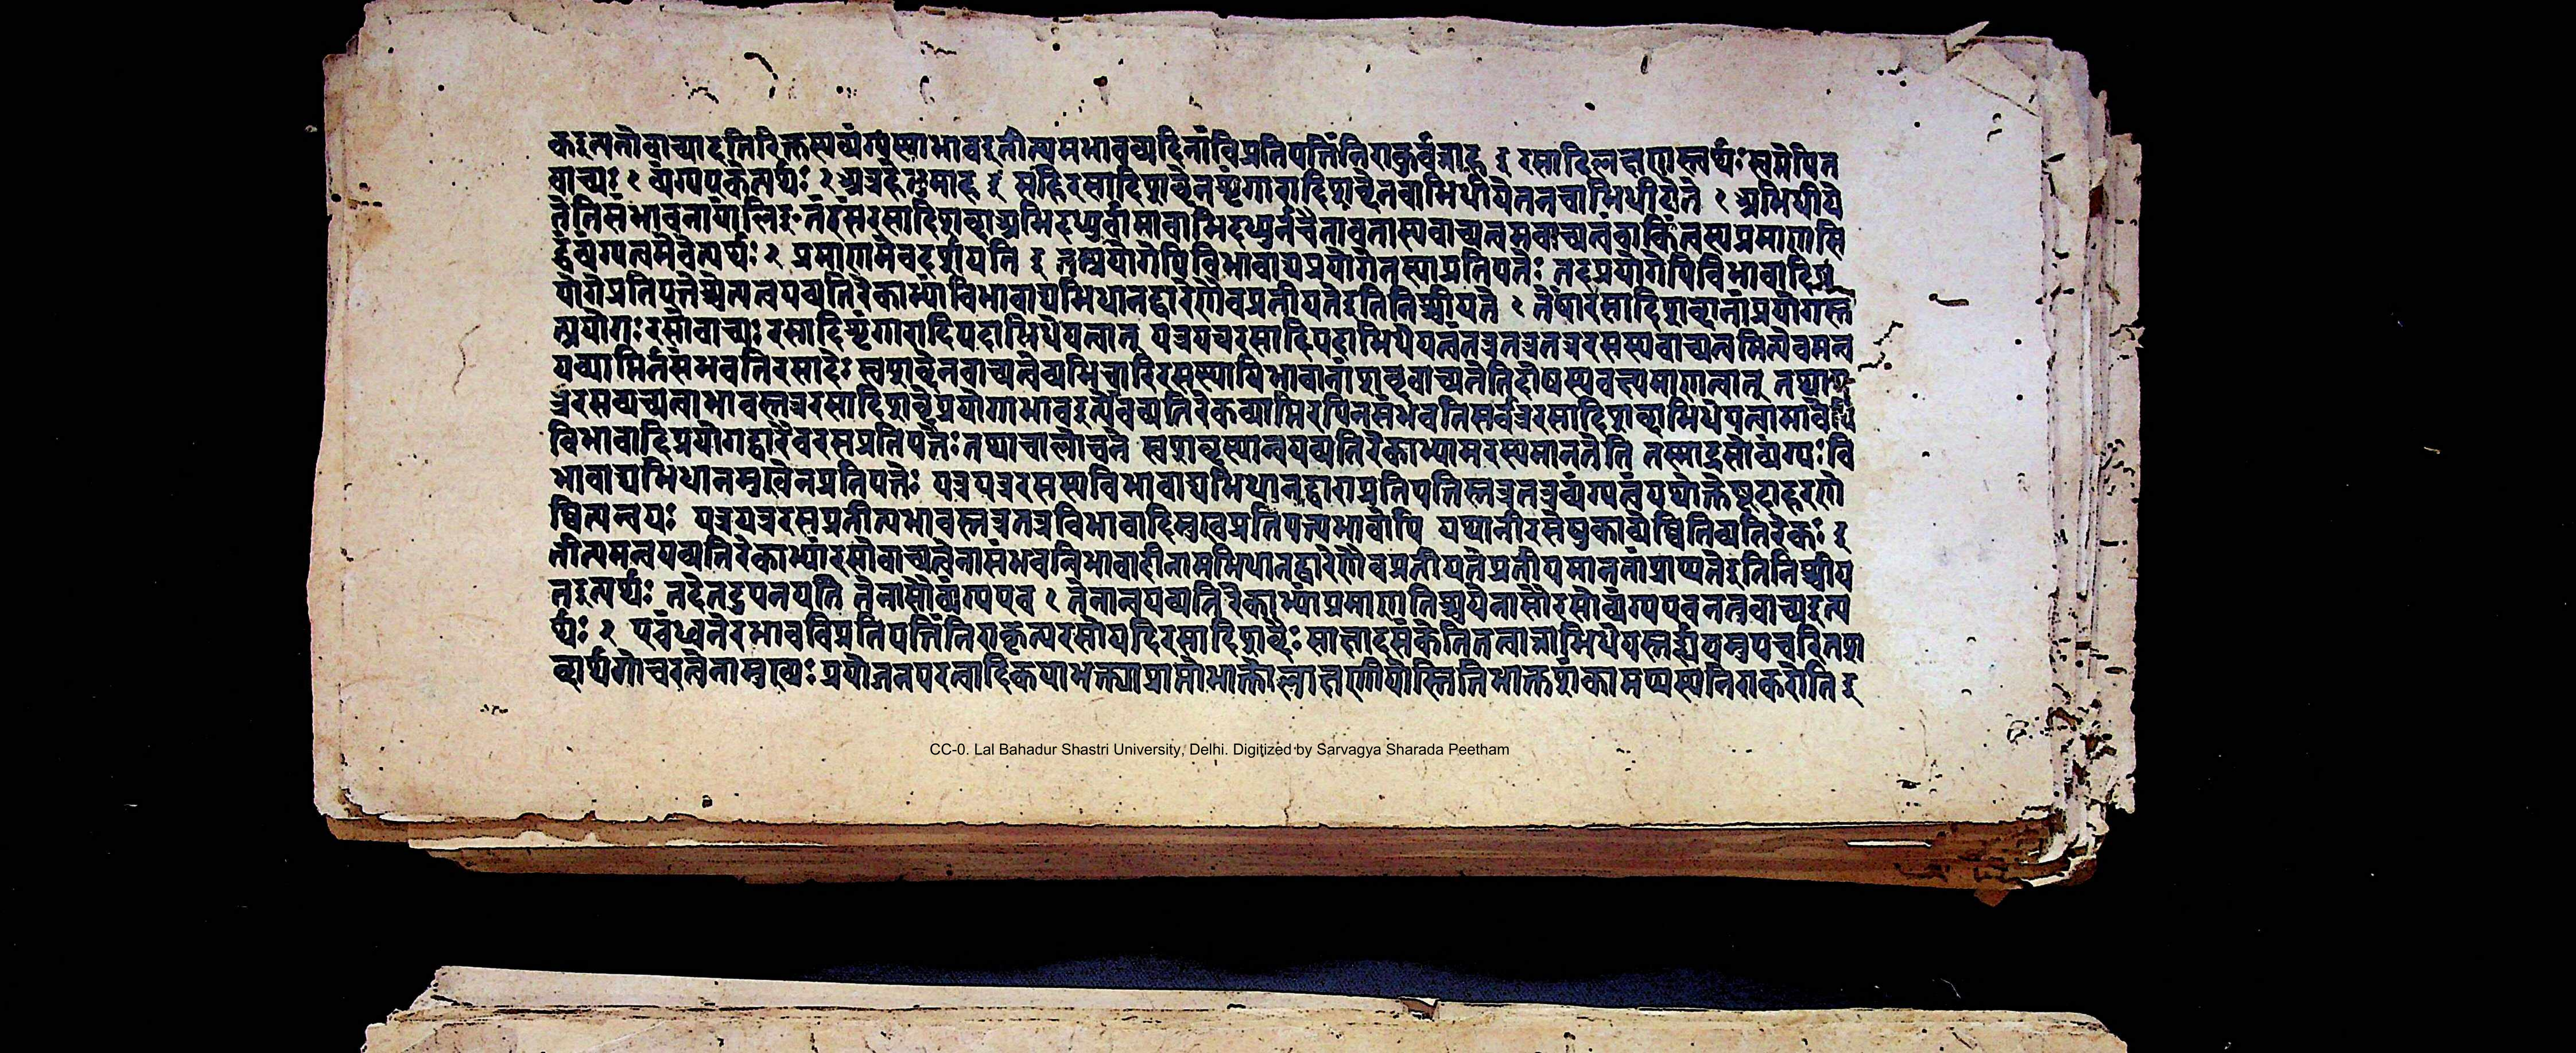 कइत्यतोवाच्यादतिरिक्तस्यव्यंग्यस्याभावइतीत्यमभाववादिनांविप्रतिपत्तिंनिराकुर्वन्नाह इ रसादिलक्षणस्त्वर्थःस्वप्नेपिन
वाच्यः १ व्यंग्यएवेत्यर्थः २ अत्रहेतुमाह इ सहिरसादिशब्देनशृंगारादिशब्देनवाभिधीयेतनचाभिधीयते १ अभिधीये
तेतिसंभावनायांलिङ् तंरसंरसादिशब्दाअभिदध्युर्वामावाभिदध्युर्नचैतावतास्यवाच्यत्वमवाच्यत्वंवाकिंत्वस्यप्रमाणसि
द्धंव्यंग्यत्वमेवेत्यर्थः २ प्रमाणमेवदर्शयति इ तत्प्रयोगेपिविभावाद्यप्रयोगेतस्याप्रतिपत्तेः तदप्रयोगेपिविभावादिप्र
योगेप्रतिपत्तेश्चेत्यन्वयव्यतिरेकाभ्यांविभावाद्यभिधानद्वारेणैवप्रतीयतेइतिनिश्चीयते १ तेषांरसादिशब्दानांप्रयोगस्त
त्प्रयोगः रसोवाच्यः रसादिशृंगारादिपदाभिधेयत्वात् यत्रयत्ररसादिपदाभिधेयत्वंतत्रतत्रतत्ररसस्यवाच्यत्वमित्येवमन्व
यव्याप्तिर्नसंभवतिरसादेः स्वशब्देनवाच्यत्वेव्यभिचारिरसस्थायिभावानांशब्दवाच्यतेतिदोषस्यवक्ष्यमाणत्वात् तथाय
त्ररसवाच्यत्वाभावस्तत्ररसादिशब्दैःप्रयोगाभावइत्येवंव्यतिरेकव्याप्तिरपिनसंभवतिसर्वत्ररसादिशब्दाभिधेयत्वाभावेपि
विभावादिप्रयोगद्वारैवरसप्रतिपत्तेः तथाचालोचने स्वशब्दस्यान्वयव्यतिरेकाभ्यामरस्यमानतेति तस्माद्रसोव्यंग्यः वि
भावाद्यभिधानमुखेनप्रतिपत्तेः यत्रयत्ररसस्यविभावाद्यभिधानद्वाराप्रतिपत्तिस्तत्रतत्रव्यंग्यत्वंयथोक्तेषूदाहरणे
ष्वित्यन्वयः यत्रयत्ररसप्रतीत्यभावस्तत्रतत्रविभावादिमुखप्रतिपत्त्यभावोपि यथानीरसेषुकाव्येष्वितिव्यतिरेकः इ
तीत्यमन्वयव्यतिरेकाभ्यांरसोवाच्यत्वेनासंभवन्विभावादीनामभिधानद्वारेणैवप्रतीयतेप्रतीयमानतांप्राप्यतेइतिनिश्चीय
तइत्यर्थः तदेतदुपनयति तेनासौव्यंग्यएव १ तेनान्वयव्यतिरेकाभ्यांप्रमाणनिश्चयेनासौरसोव्यंग्यएवनतुवाच्यइत्य
र्थः २ एवंध्वनेरभावविप्रतिपत्तिंनिराकृत्यरसोयदिरसादिशब्दैः साक्षादसंकेतितत्वान्नाभिधेयस्तर्ह्ययमुपचरितश
ब्दार्थगोचरत्वेनामुख्यः प्रयोजनपरत्वादिकयाभक्त्याप्राप्तोभाक्तोलाक्षणीयोस्त्वितिभाक्तशंकामप्यस्यनिराकरोति इ
CC-0. Lal Bahadur Shastri University, Delhi. Digitized by Sarvagya Sharada Peetham